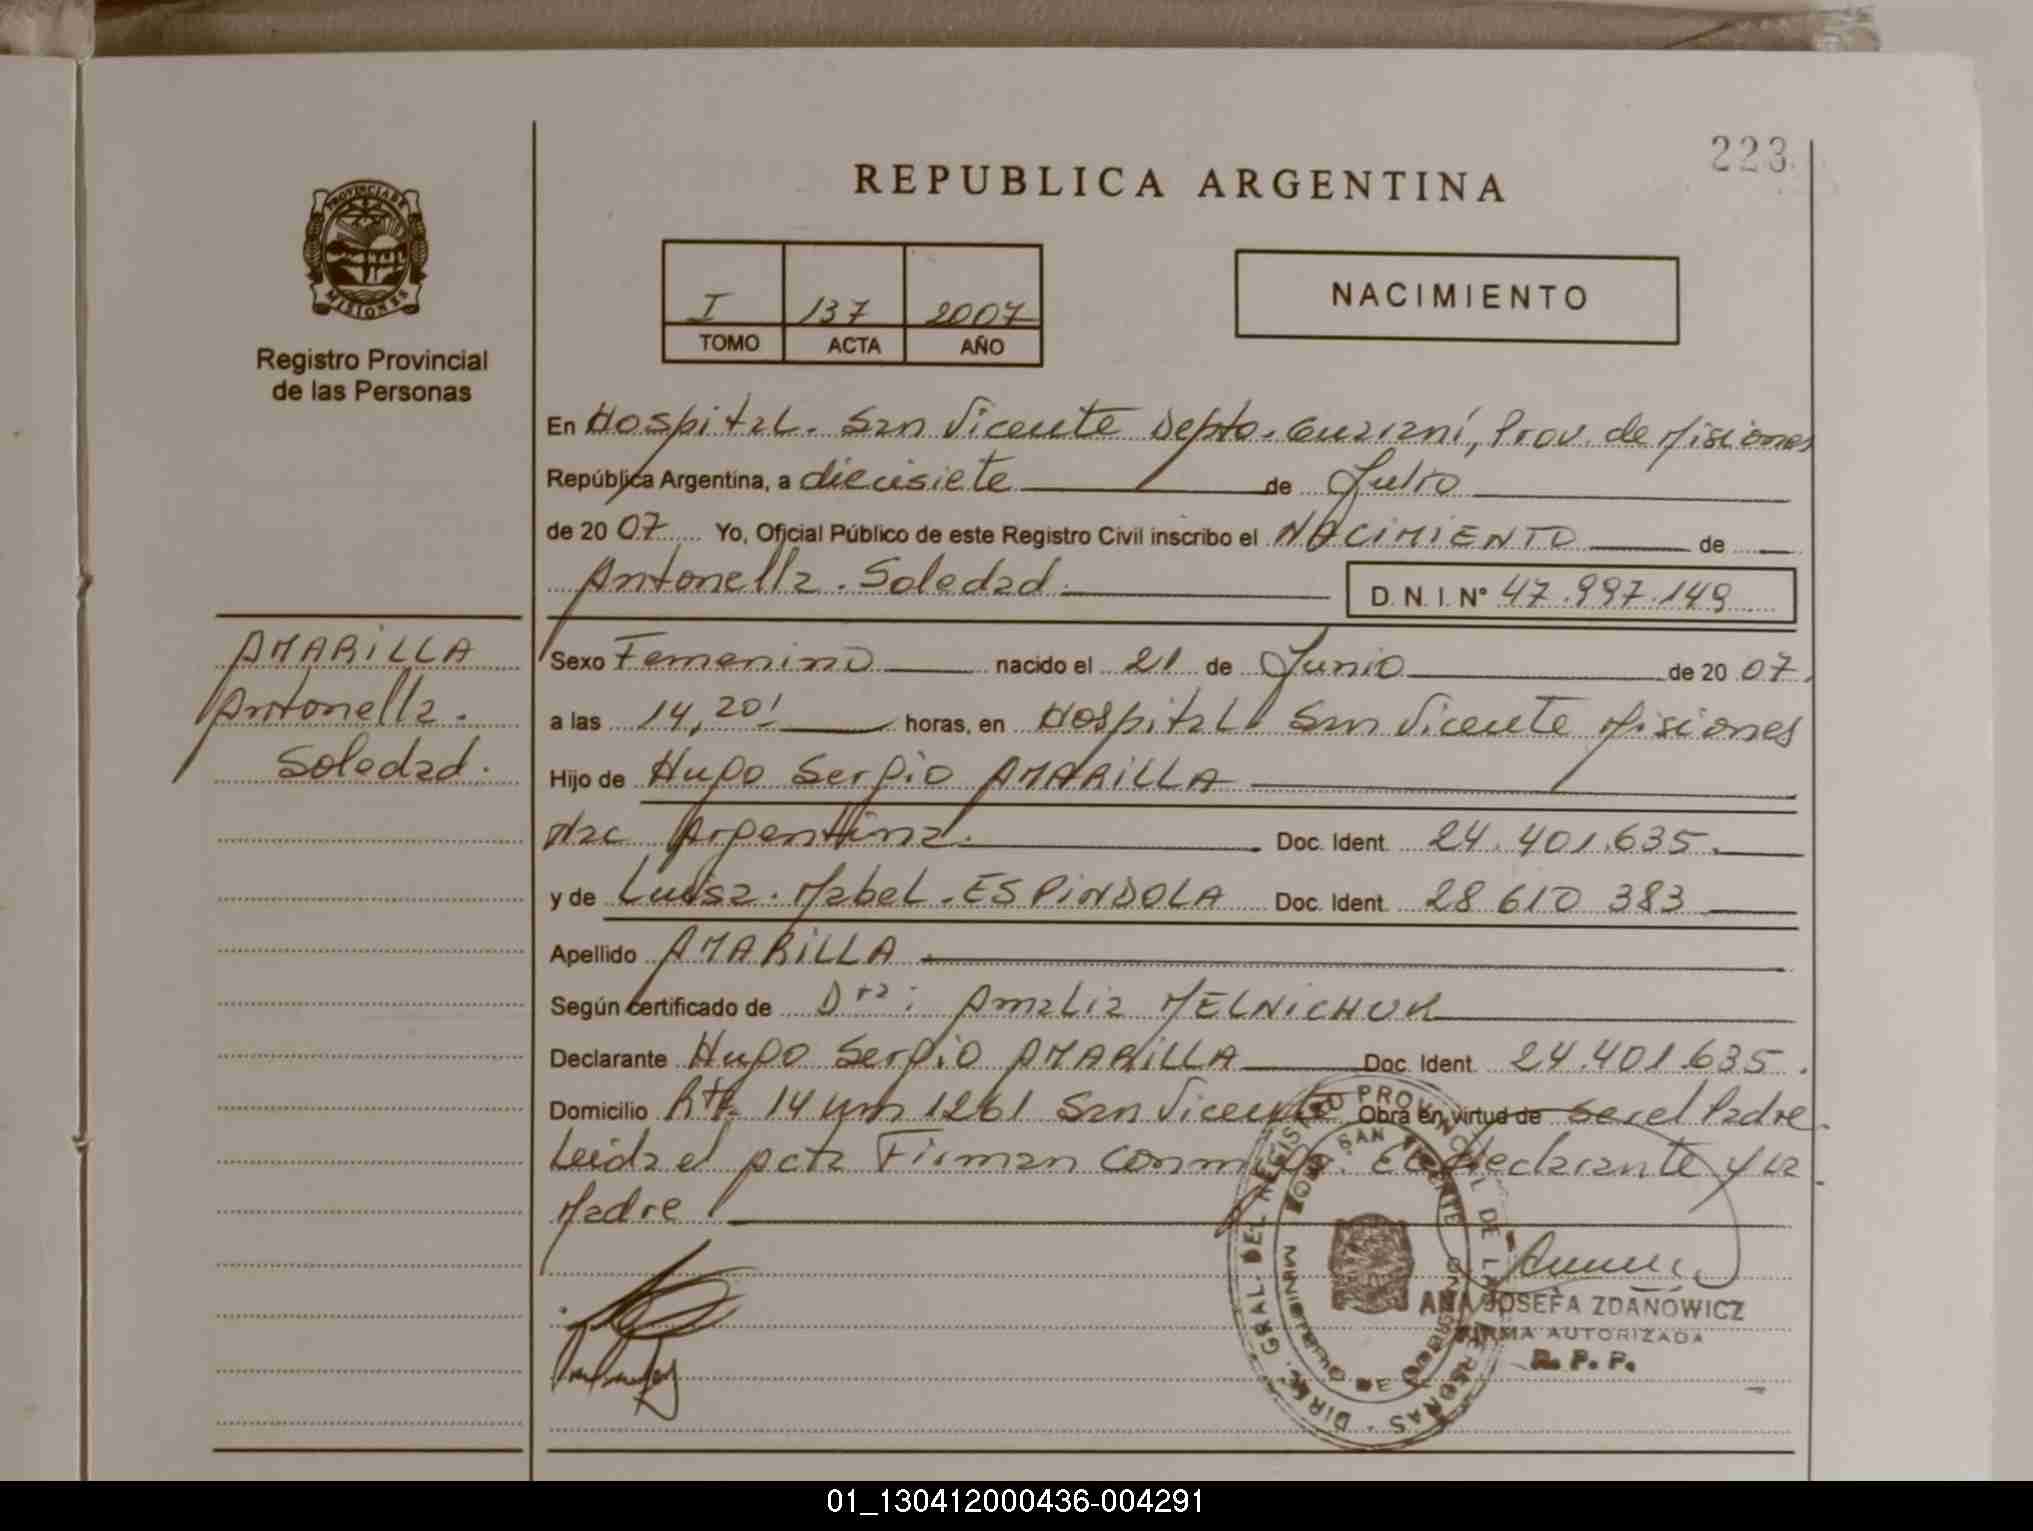 223
REPUBLICA ARGENTINA
PROVINCIA DE
MISIONES
Registro Provincial
de las Personas
I 137 2007
TOMO ACTA AÑO
NACIMIENTO
En Hospital. San Vicente Depto. Guaraní, Prov. de Misiones
República Argentina, a diecisiete de Julio
de 20 07 Yo, Oficial Público de este Registro Civil inscribo el NACIMIENTO de
Antonella. Soledad
D. N. I. Nº 47.997.149
AMARILLA
Antonella.
Soledad.
Sexo Femenino nacido el 21 de Junio de 20 07.
a las 14,20' horas, en Hospital San Vicente Misiones
Hijo de Hugo Sergio AMARILLA
Nac Argentina. Doc. Ident. 24.401.635.
y de Luisa. Mabel. ESPINDOLA Doc. Ident. 28 610 383
Apellido AMARILLA
Según certificado de Dra: Amalia MELNICHUK
Declarante Hugo Sergio AMARILLA Doc. Ident. 24.401.635.
Domicilio Rta 14 km 1261 San Vicente Obra en virtud de ser el Padre.
Leida el acta Firman conmigo. El declarante y la
Madre
DIREC. GRAL. DEL REGISTRO PROVINCIAL DE LAS PERSONAS
SAN VICENTE
ANA JOSEFA ZDANOWICZ
FIRMA AUTORIZADA
R. P. P.
01_130412000436-004291